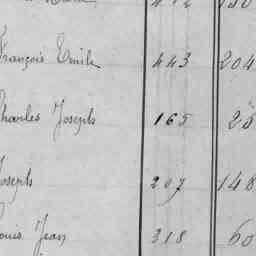 François Emile 443 204
Charles Joseph 165 25
Joseph 207 148
Louis Jean 318 60